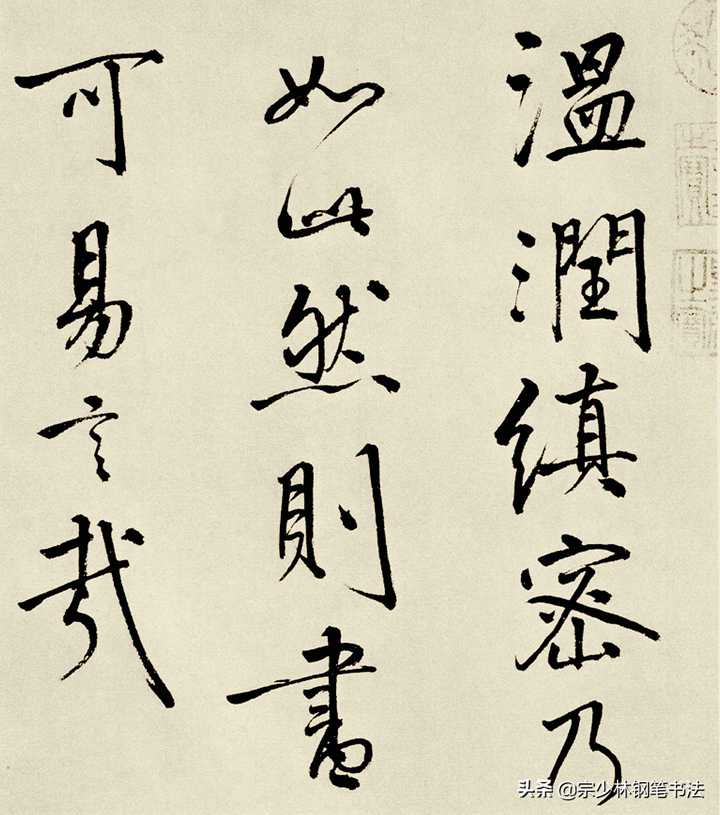 溫潤縝密乃
如此然則畫
可易言哉
头条 @宗少林钢笔书法